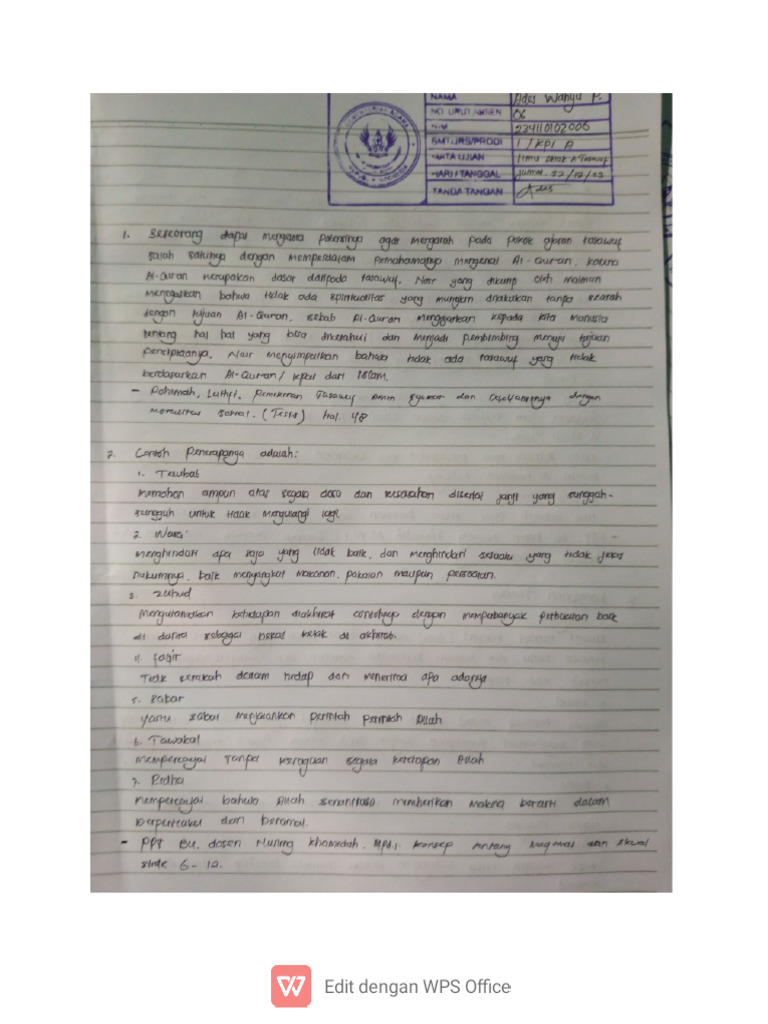 NAMA Ades Wahyu P.
NO URUT ABSEN 06
NIM 234110102006
SMT/JRS/PRODI 1 / KPI A
MATA UJIAN Ilmu Tasawuf
HARI / TANGGAL Jumat 22/12/23
TANDA TANGAN Ades
1. Seseorang dapat potensinya agar mengarah pada pokok ajaran tasawuf
salah satunya dengan memperdalam pemahamannya mengenai Al-Quran, karena
Al-Quran merupakan dasar daripada tasawuf. Nasr yang dikutip oleh maimun
menegaskan bahwa tidak ada spiritualitas yang mungkin dilakukan tanpa searah
dengan tujuan Al-Quran, sebab Al-Quran mengajarkan kepada kita manusia
tentang hal hal yang bisa diketahui dan menjadi pembimbing menuju tujuan
penciptaanya. Nasr menyimpulkan bahwa tidak ada tasawuf yang tidak
berdasarkan Al-Quran / lepas dari Islam.
- Fatimah, Luthfi. Pemikiran Tasawuf Amin Syukur dan dengan
sosial. (Tesis) hal. 48
2. Contoh Penerapanya adalah:
1. Tawbat
Memohon ampun atas segala dosa dan kesalahan disertai janji yang sungguh-
sungguh untuk tidak mengulangi lagi.
2. Wara'
menghindari apa saja yang tidak baik, dan menghindari sesuatu yang tidak jelas
hukumnya, baik menyangkut makanan, pakaian maupun persoalan.
3. Zuhud
Mengutamakan kehidupan diakhirat contohnya dengan mempabanyak perbuatan baik
di dunia sebagai bekal kelak di akhirat.
4. faqir
Tidk serakah dalam hidup dan menerima apa adanya
5. Sabar
yaitu sabar menjalankan perintah perintah Allah
6. Tawakal
mempercayai tanpa keraguan segala ketetapan Allah
7. Ridha
mempercayai bahwa Allah senantiasa memberikan makna berarti dalam
dan beramal.
- PPT Bu. dosen Nuring khamidah, Mpd.i konsep tentang maqomat dan ahwal
slide 6 - 12.
Edit dengan WPS Office